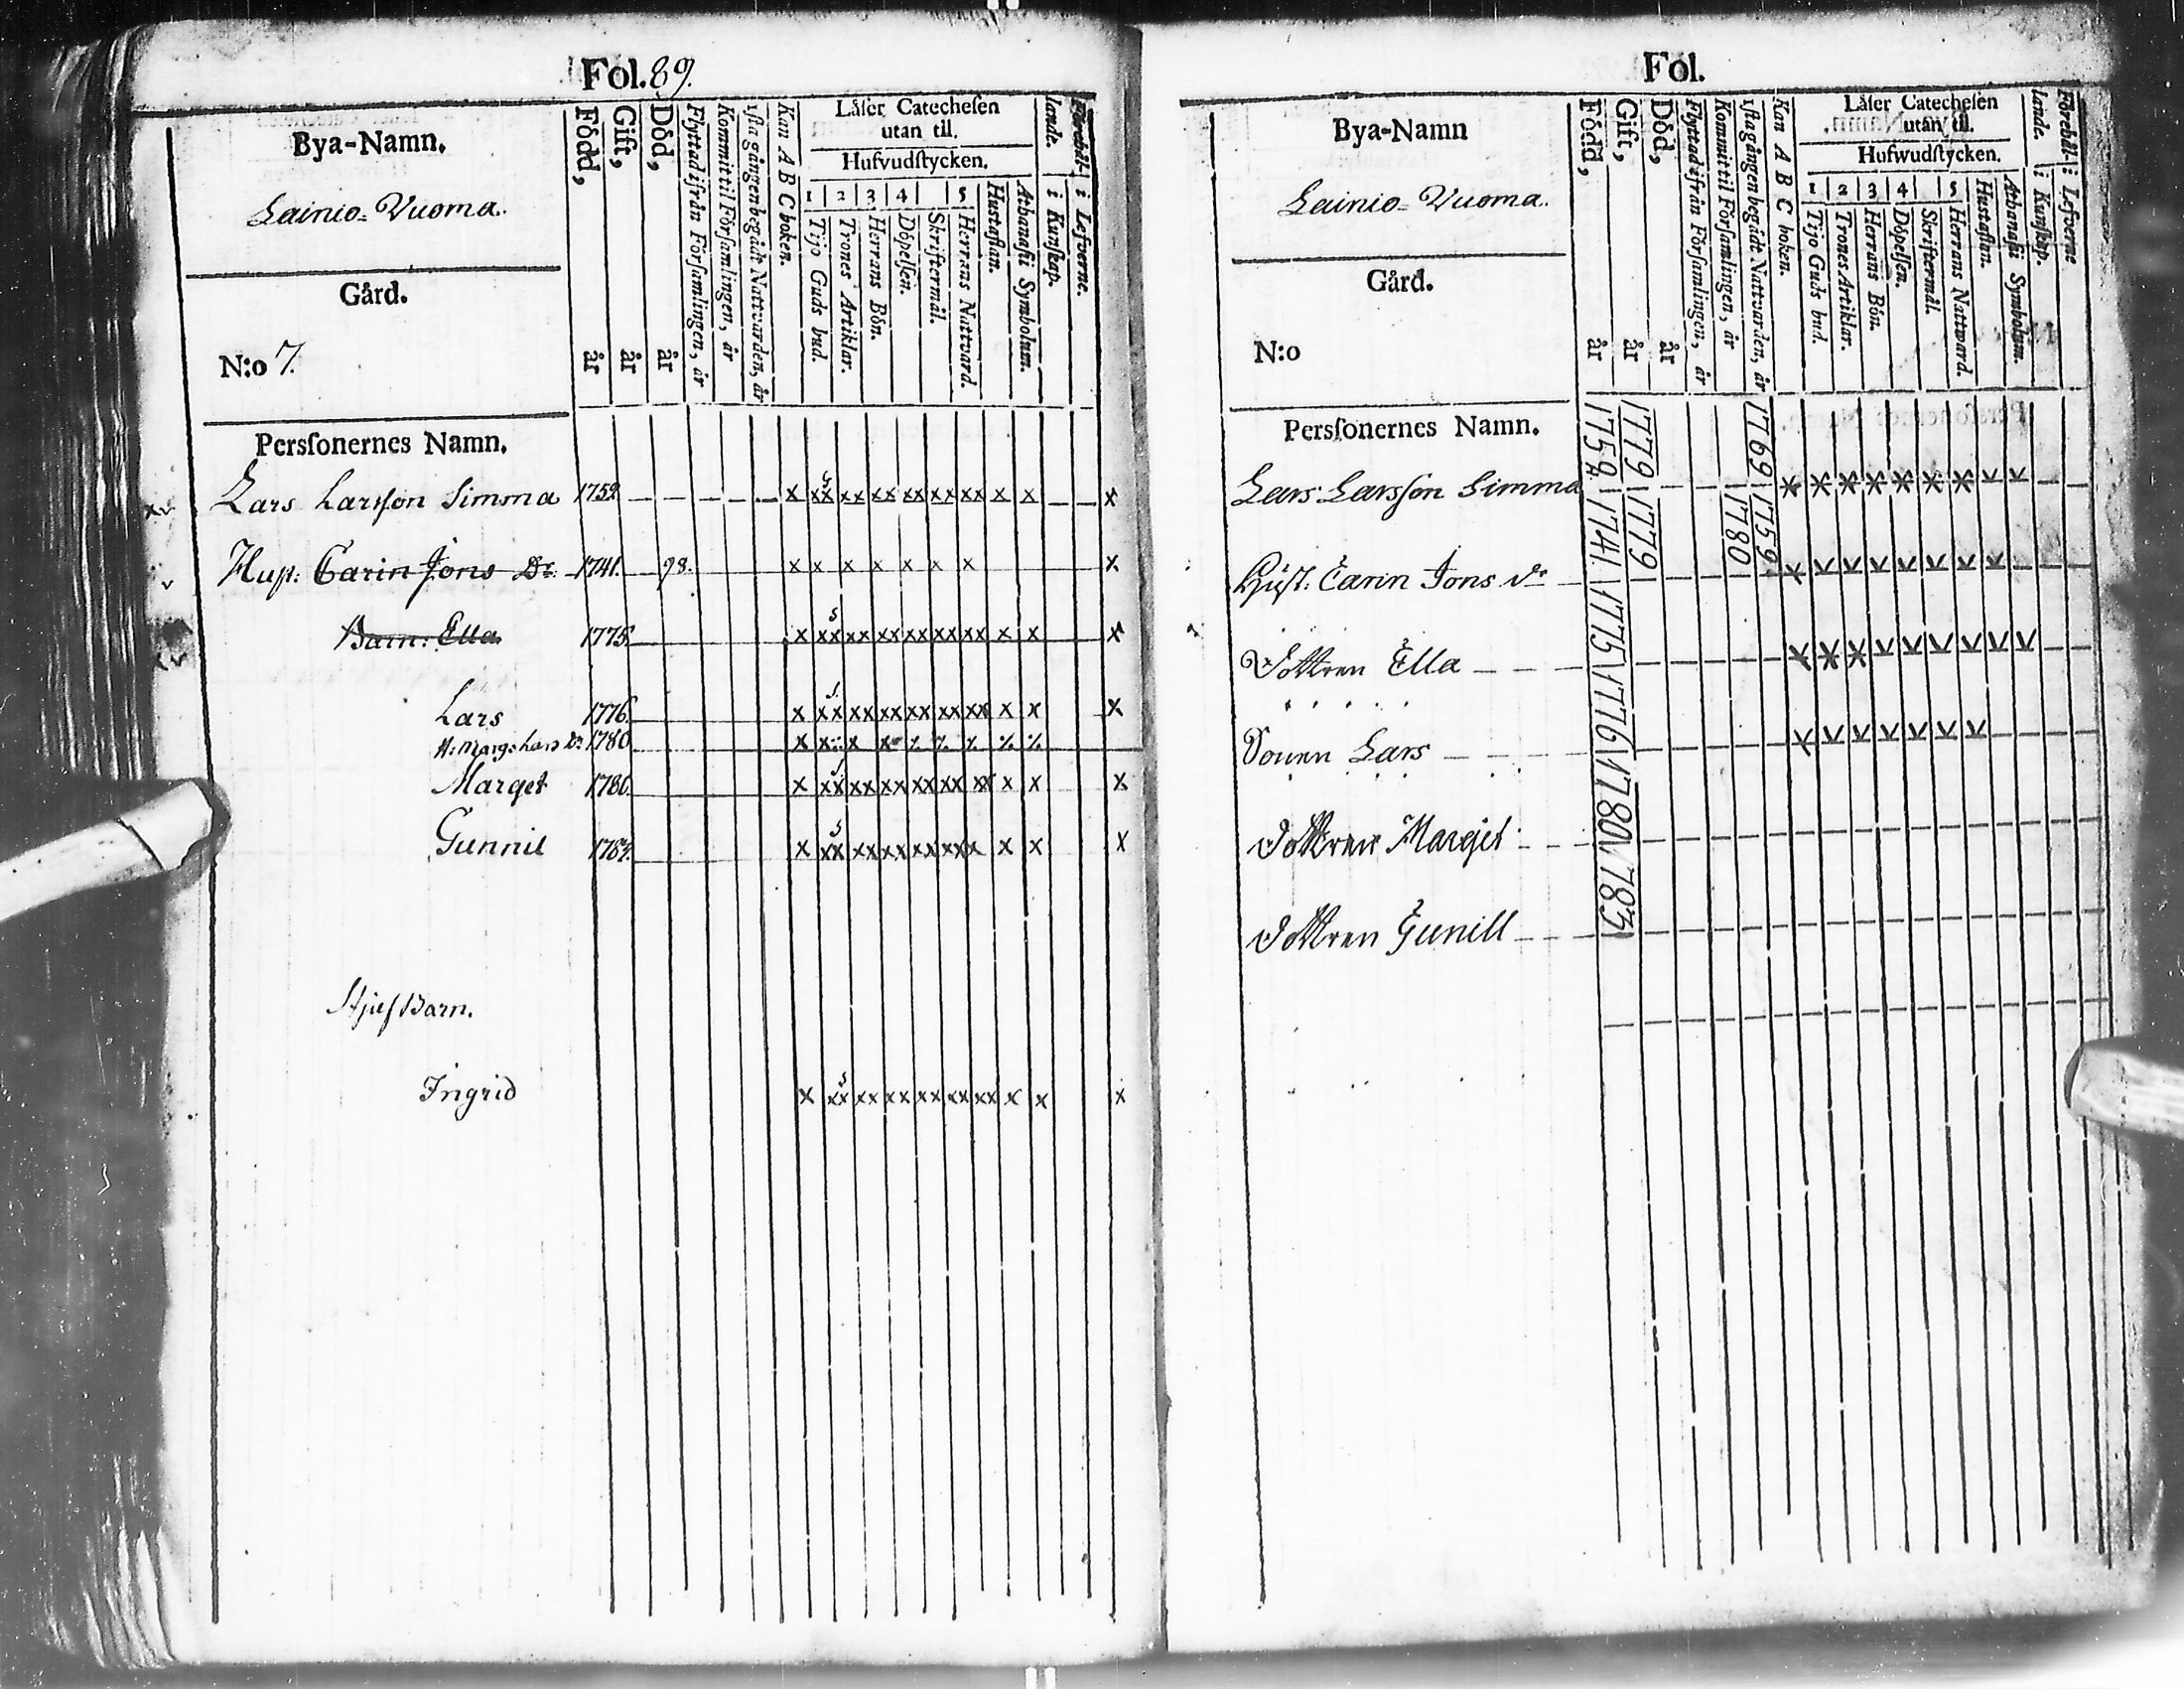 Fol. 89.
Bya-Namn.
Lainio-Vuoma.
Gård.
N:o 7.
Persſonernes Namn.
Född, år
Gift, år
Död, år
Flyttad ifrån Förſamlingen, år
Kommit til Förſamlingen, år
1ſta gången begådt Nattvarden, år
Kan A B C boken.
Läſer Catecheſen
utan til.
Hufvudſtycken.
1 2 3 4 5
Tijo Guds bud.
Trones Artiklar.
Herrans Bön.
Döpelſen.
Skriftermål.
Herrans Nattvard.
Huſtaflan.
Athanaſii Symbolum.
Förehål-
lande.
i Kunſkap.
i Lefverne.
Lars Larsſon Simma 1752 x xx xx xx xx xx xx x x x
Carin Jons Dr. 1741. 98. x x x x x x x x
Barn: Ella 1775. x xx xx xx xx xx xx x x x
Lars 1776. x xx xx xx xx xx xx x x x
H: Marg. Lars Dr 1780
Marget 1780. x xx xx xx xx xx xx x x x
Gunnil 1783. x xx xx xx xx xx xx x x x
Stjuf Barn.
Ingrid x xx xx xx xx xx xx x x x
Fol.
Bya-Namn
Lainio-Vuoma.
Gård.
N:o
Persſonernes Namn.
Född, år
Gift, år
Död, år
Flyttad ifrån Förſamlingen, år
Kommit til Förſamlingen, år
1ſta gången begådt Nattvarden, år
Kan A B C boken.
Läſer Catecheſen
utan til.
Hufwudſtycken.
1 2 3 4 5
Tijo Guds bud.
Trones Artiklar.
Herrans Bön.
Döpelſen.
Skriftermål.
Herrans Nattward.
Huſtaflan.
Athanaſii Symbolum.
Förehål-
lande.
i Kunſkap.
i Lefverne
Lars Larsſon Simma 1752. 1779 1769
Huſt: Carin Jons dr 1741. 1779 1780 1759.
Dottren Ella 1775
Sonen Lars 1776
Dottren Marget 1780
Dottren Gunill 1783